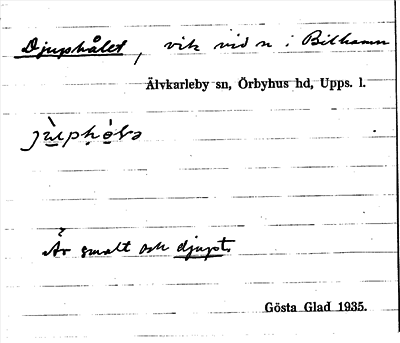 Djuphålet, vik vid n. i Billhamn
Älvkarleby sn, Örbyhus hd, Upps. l.
Är smalt och djupt.
Gösta Glad 1935.